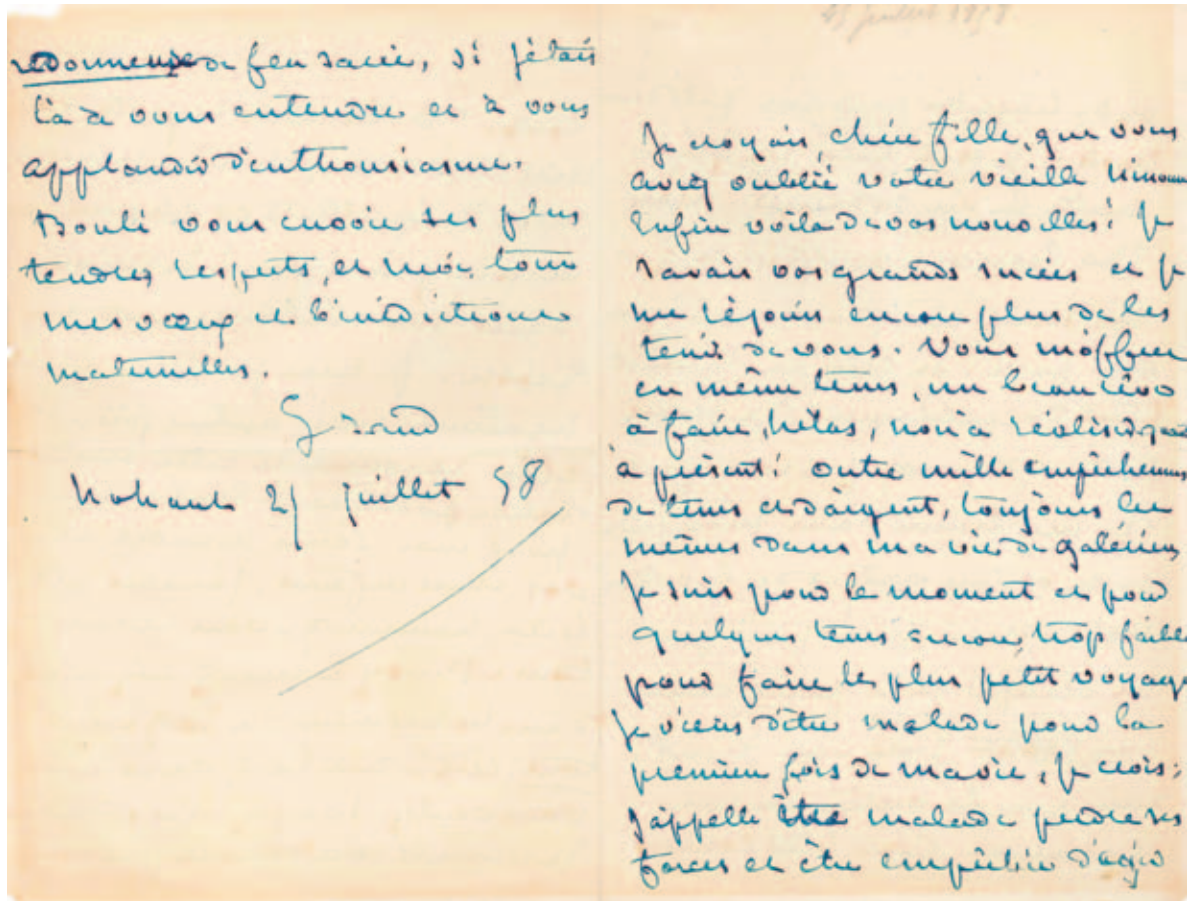 redonneuse de feu sacré, si j'étais
là à vous entendre et à vous
applaudir d'enthousiasme.
Bouli vous envoie ses plus
tendres respects, et moi, tous
mes vœux et bénédictions
maternelles.
G Sand
Nohant 25 juillet 58
25 juillet 1858
Je croyais, chère fille, que vous
aviez oublié votre vieille
Enfin voilà de vos nouvelles! Je
savais vos grands succès et je
me réjouis encore plus de les
tenir de vous. Vous m'offrez
en même tems, un beau rêve
à faire, hélas, non à réaliser quant
à présent! outre mille empêchemens
de tems et d'argent, toujours les
mêmes dans ma vie de galérien,
je suis pour le moment et pour
quelques tems encore, trop faible
pour faire le plus petit voyage
Je viens d'être malade pour la
première fois de ma vie, je crois:
j'appelle être malade perdre ses
forces et être empêchée d'agir